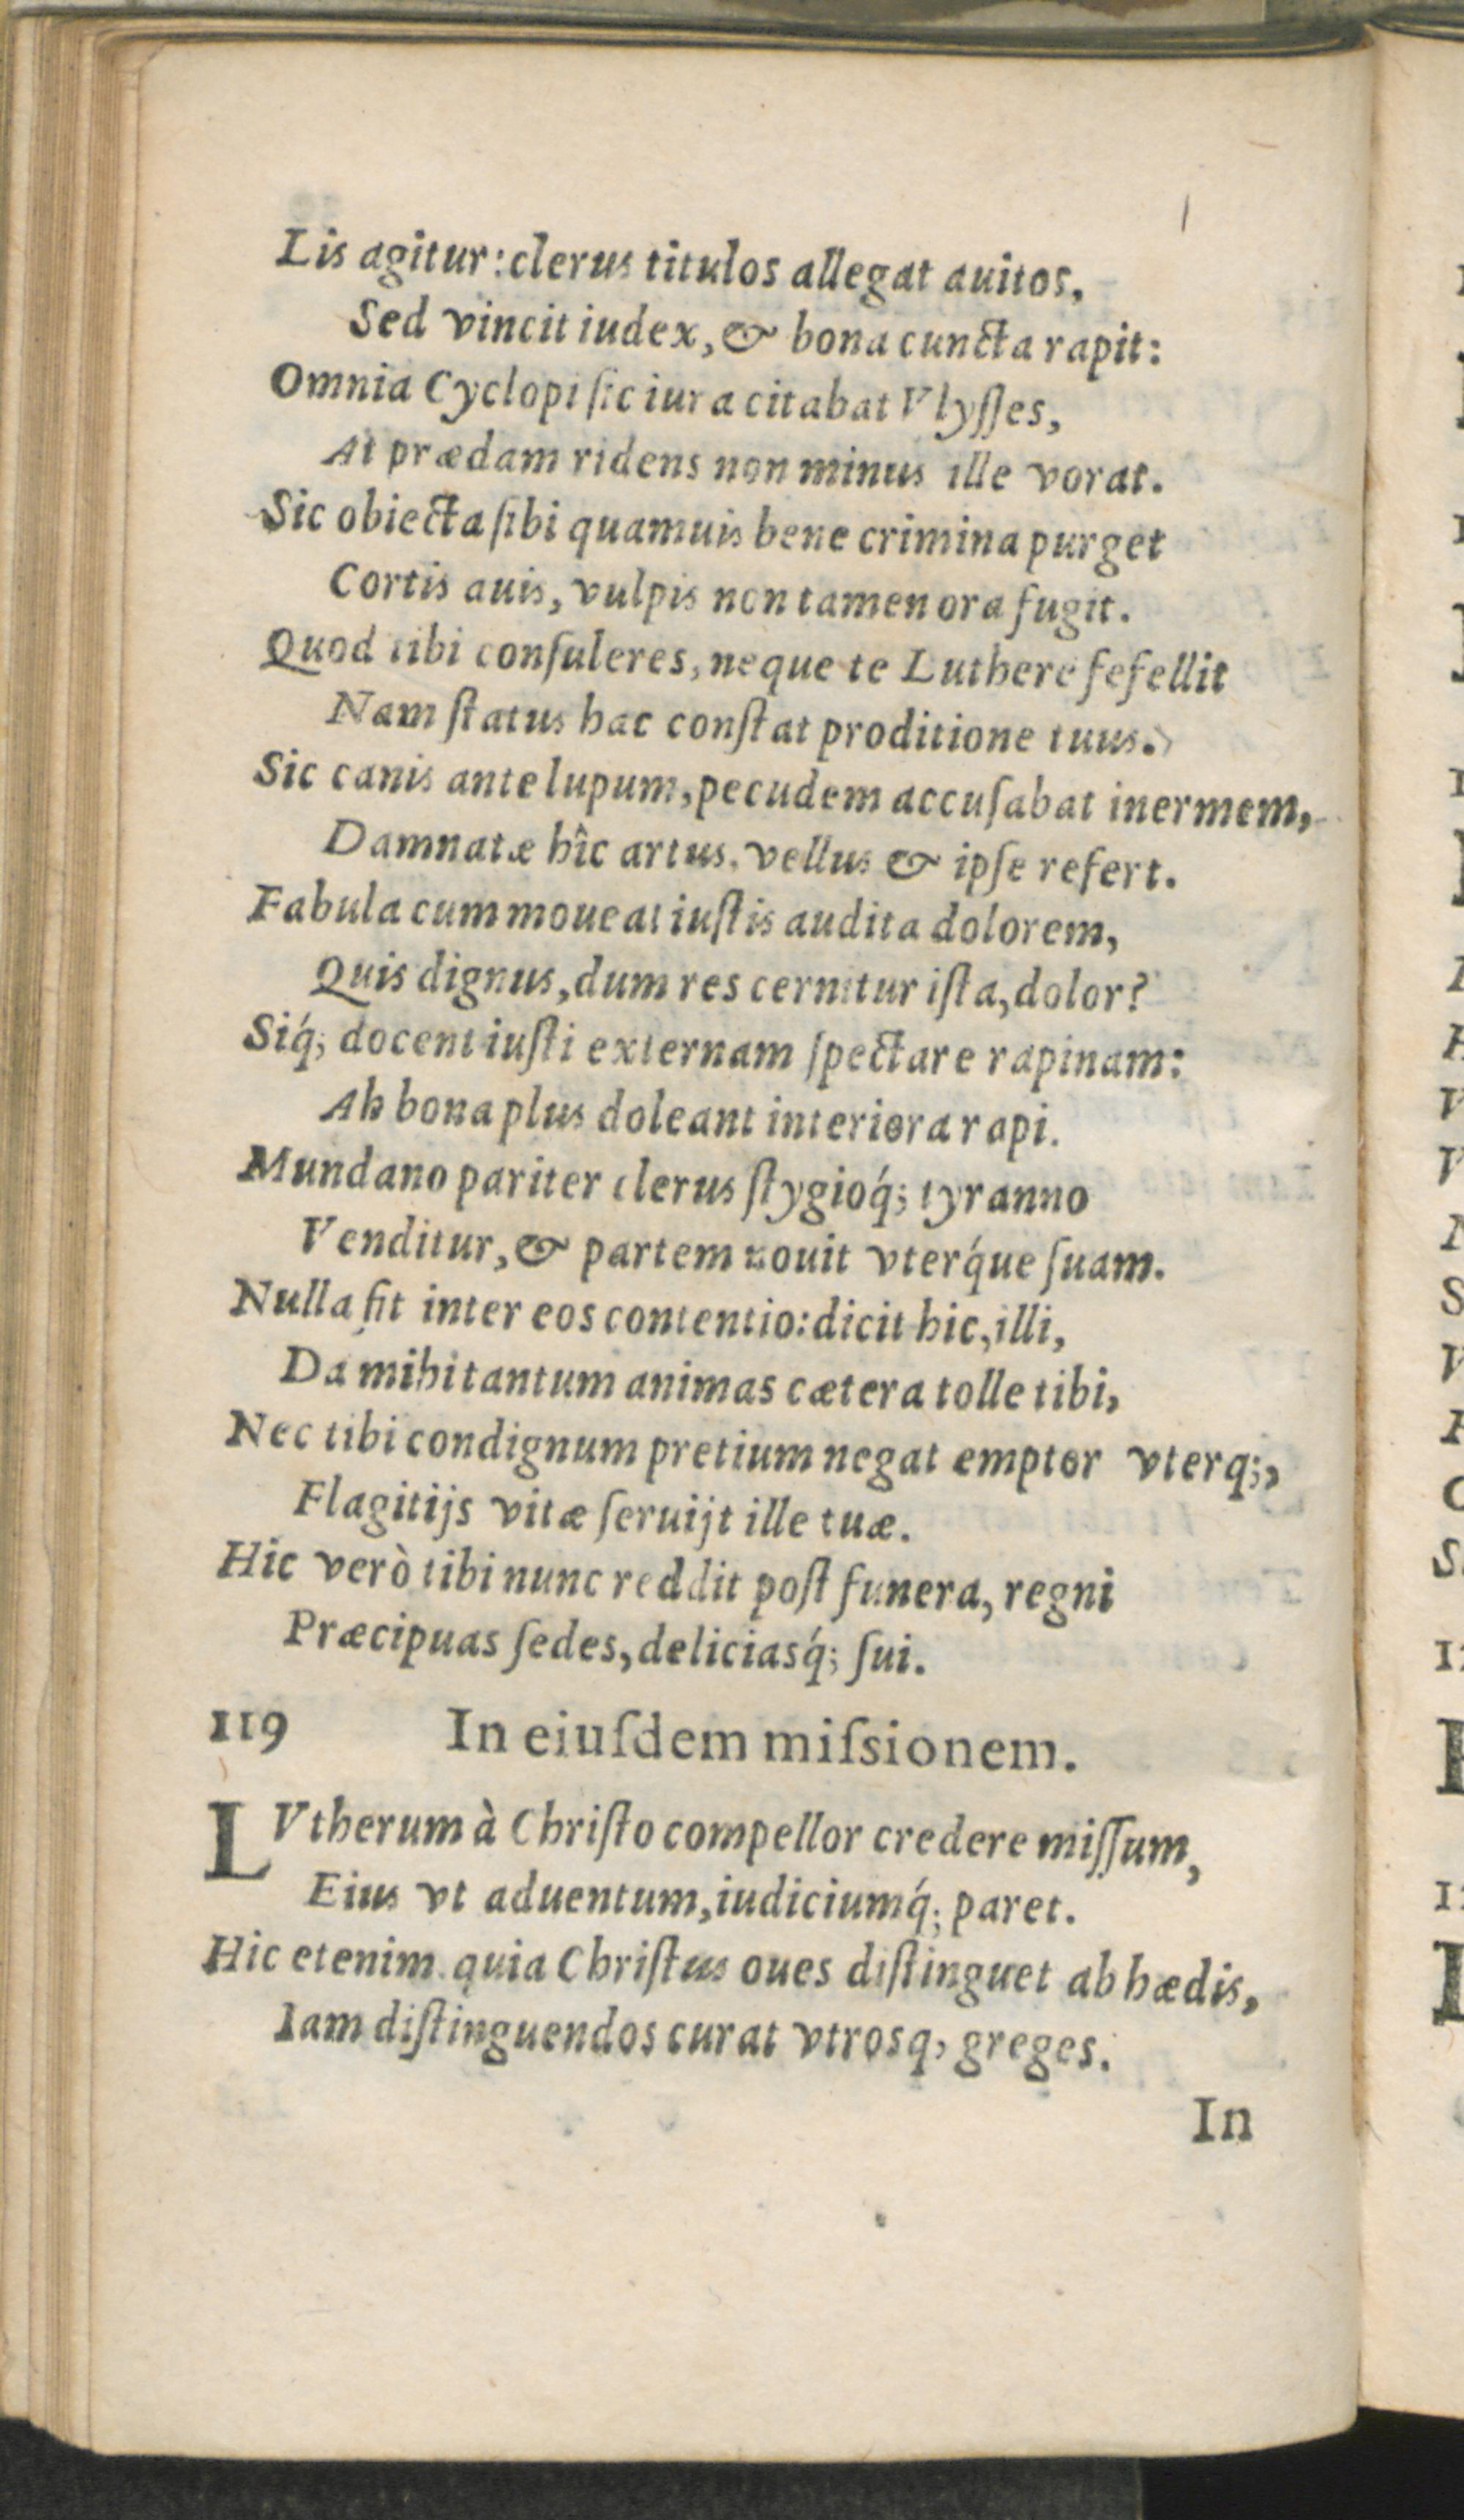 Lis agitur: clerus titulos allegat auitos,
Sed vincit iudex, & bona cuncta rapit:
Omnia Cyclopi ſic iura citabat Vlyſſes,
At prædam ridens non minus ille vorat.
Sic obiecta ſibi quamuis bene crimina purget
Cortis auis, vulpis non tamen ora fugit.
Quod tibi conſuleres, neque te Luthere fefellit
Nam ſtatus hac conſtat proditione tuus.
Sic canis ante lupum, pecudem accuſabat inermem,
Damnatæ hîc artus, vellus & ipſe refert.
Fabula cum moueat iuſtis audita dolorem,
Quis dignus, dum res cernitur iſta, dolor?
Siq́; docent iuſti externam ſpectare rapinam:
Ah bona plus doleant interiora rapi.
Mundano pariter clerus ſtygioq́; tyranno
Venditur, & partem nouit vterq́ue ſuam.
Nulla fit inter eos contentio: dicit hic, illi,
Da mihi tantum animas cætera tolle tibi,
Nec tibi condignum pretium negat emptor vterq;,
Flagitijs vitæ ſeruijt ille tuæ.
Hic verò tibi nunc reddit poſt funera, regni
Præcipuas ſedes, deliciasq́; ſui.
119 In eiuſdem miſsionem.
LVtherum à Chriſto compellor credere miſſum,
Eius vt aduentum, iudiciumq́; paret.
Hic etenim quia Chriſtus oues diſtinguet ab hædis,
Iam diſtinguendos curat vtrosq; greges.
In